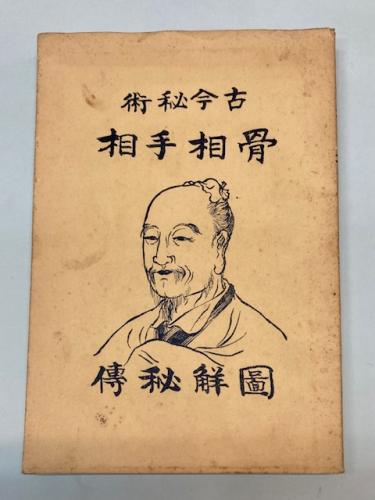 古今秘術
骨相手相
圖解秘傳